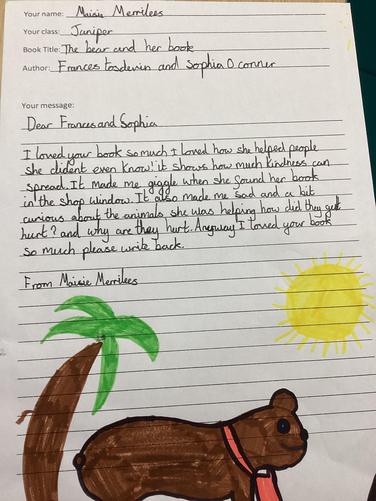 Your name: Maisie Merrilees
Your class: Juniper
Book Title: The bear and her book
Author: Frances Tosdevin and Sophia O conner
Your message:
Dear Frances and Sophia
I loved your book so much I loved how she helped people
she dident even know! it shows how much kindness can
spread. It made me giggle when she found her book
in the shop window. It also made me sad and a bit
curious about the animals, she was helping how did they get
hurt? and why are they hurt. Anyway I loved your book
so much please write back.
From Maisie Merrilees